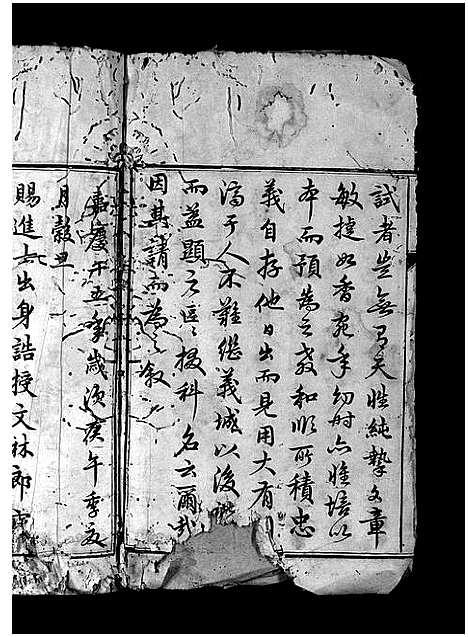 試者豈無有天性純摯文章
敏捷如香宛年幼時亦惟培以
本而預為之教和順所積忠
義自存他日出而見用大有
濟于人不難繼義城以後
而益顯之區區掇科名云爾哉
因其請而為之敘
嘉慶十五年歲次庚午季夏
月穀旦
賜進士出身誥授文林郎